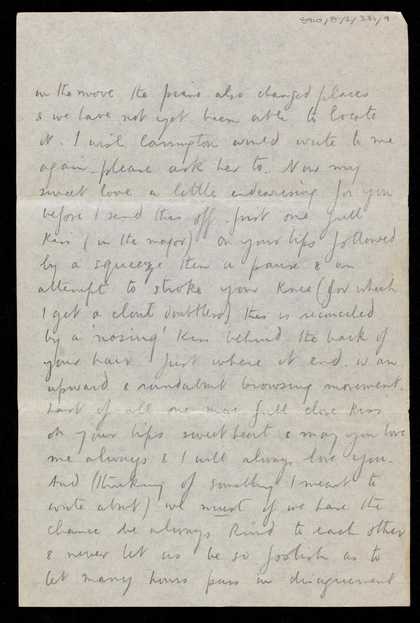 8910/5/2/331/9
on the move the piano also changed places
& we have not yet been able to locate
it. I wish Carrington would write to me
again. please ask her to. Now my
sweet love a little endearising for you
before I send this off. first one full
kiss (in the major) on your lips followed
by a squeeze then a pause & an
attempt to stroke your knee (for which
I get a clout doubtless) this is reconciled
by a 'nosing' kiss behind the back of
your hair just where it ends. w an
upward & roundabout browsing movement.
Last of all one more full close kiss
on your lips sweetheart & may you love
me always & I will always love you.
And (thinking of something I meant to
write about) we must if we have the
chance be always kind to each other
& never let us be so foolish as to
let many hours pass in disagreement